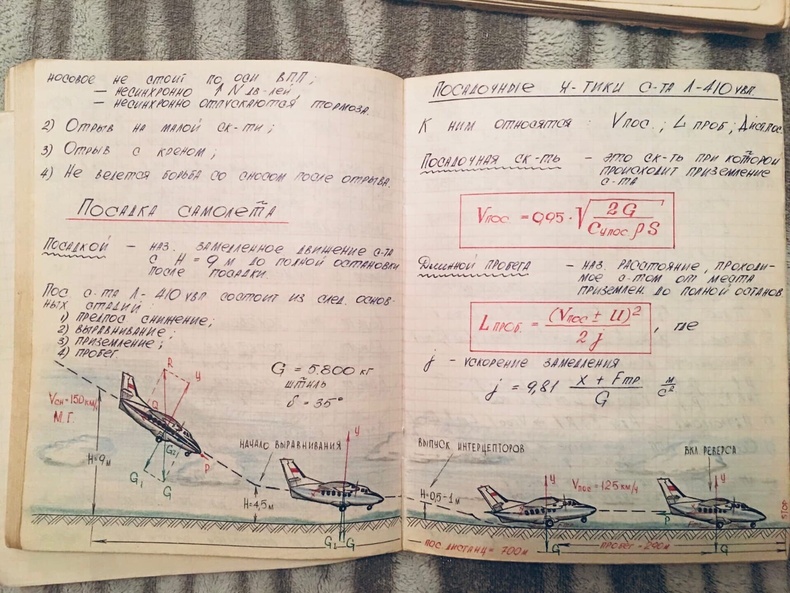 носовое не стоит по оси ВПП;
— несинхронно ↑ N дв-лей,
— несинхронно отпускаются тормоза.
2) Отрыв на малой ск-ти;
3) Отрыв с креном;
4) Не ведется борьба со сносом после отрыва.
Посадка самолета
Посадкой — наз. замедленное движение с-та
с H = 9 м до полной остановки
после посадки.
Пос с-та Л-410 увп состоит из след. основ-
ных стадий:
1) предпос снижение;
2) выравнивание;
3) приземление;
4) пробег
G = 5.800 кг
штиль
δ = 35°
R
y
Q
Vсн=150км/ч
М.Г.
H=9м
G2
P
G1
G
начало выравнивания
H=4,5м
y
G1 G
Посадочные х-тики с-та Л-410 увп.
К ним относятся: Vпос; L проб;
Посадочная ск-ть — это ск-ть при которой
происходит приземление
с-та
Vпос = 0,95 · √ 2G / Cупос ρ S
Длинной пробега — наз. расстояние, проходи-
мое с-том от места
приземлен. до полной останов
L проб. = (Vпос ± U)² / 2j , где
j — ускорение замедления
j = 9,81 X + Fтр / G м/с²
выпуск интерцепторов
вкл реверса
H=0,5-1м
y
Vпос=125 км/ч
y
P
G
G
пос дистанц = 700м
пробег = 240м